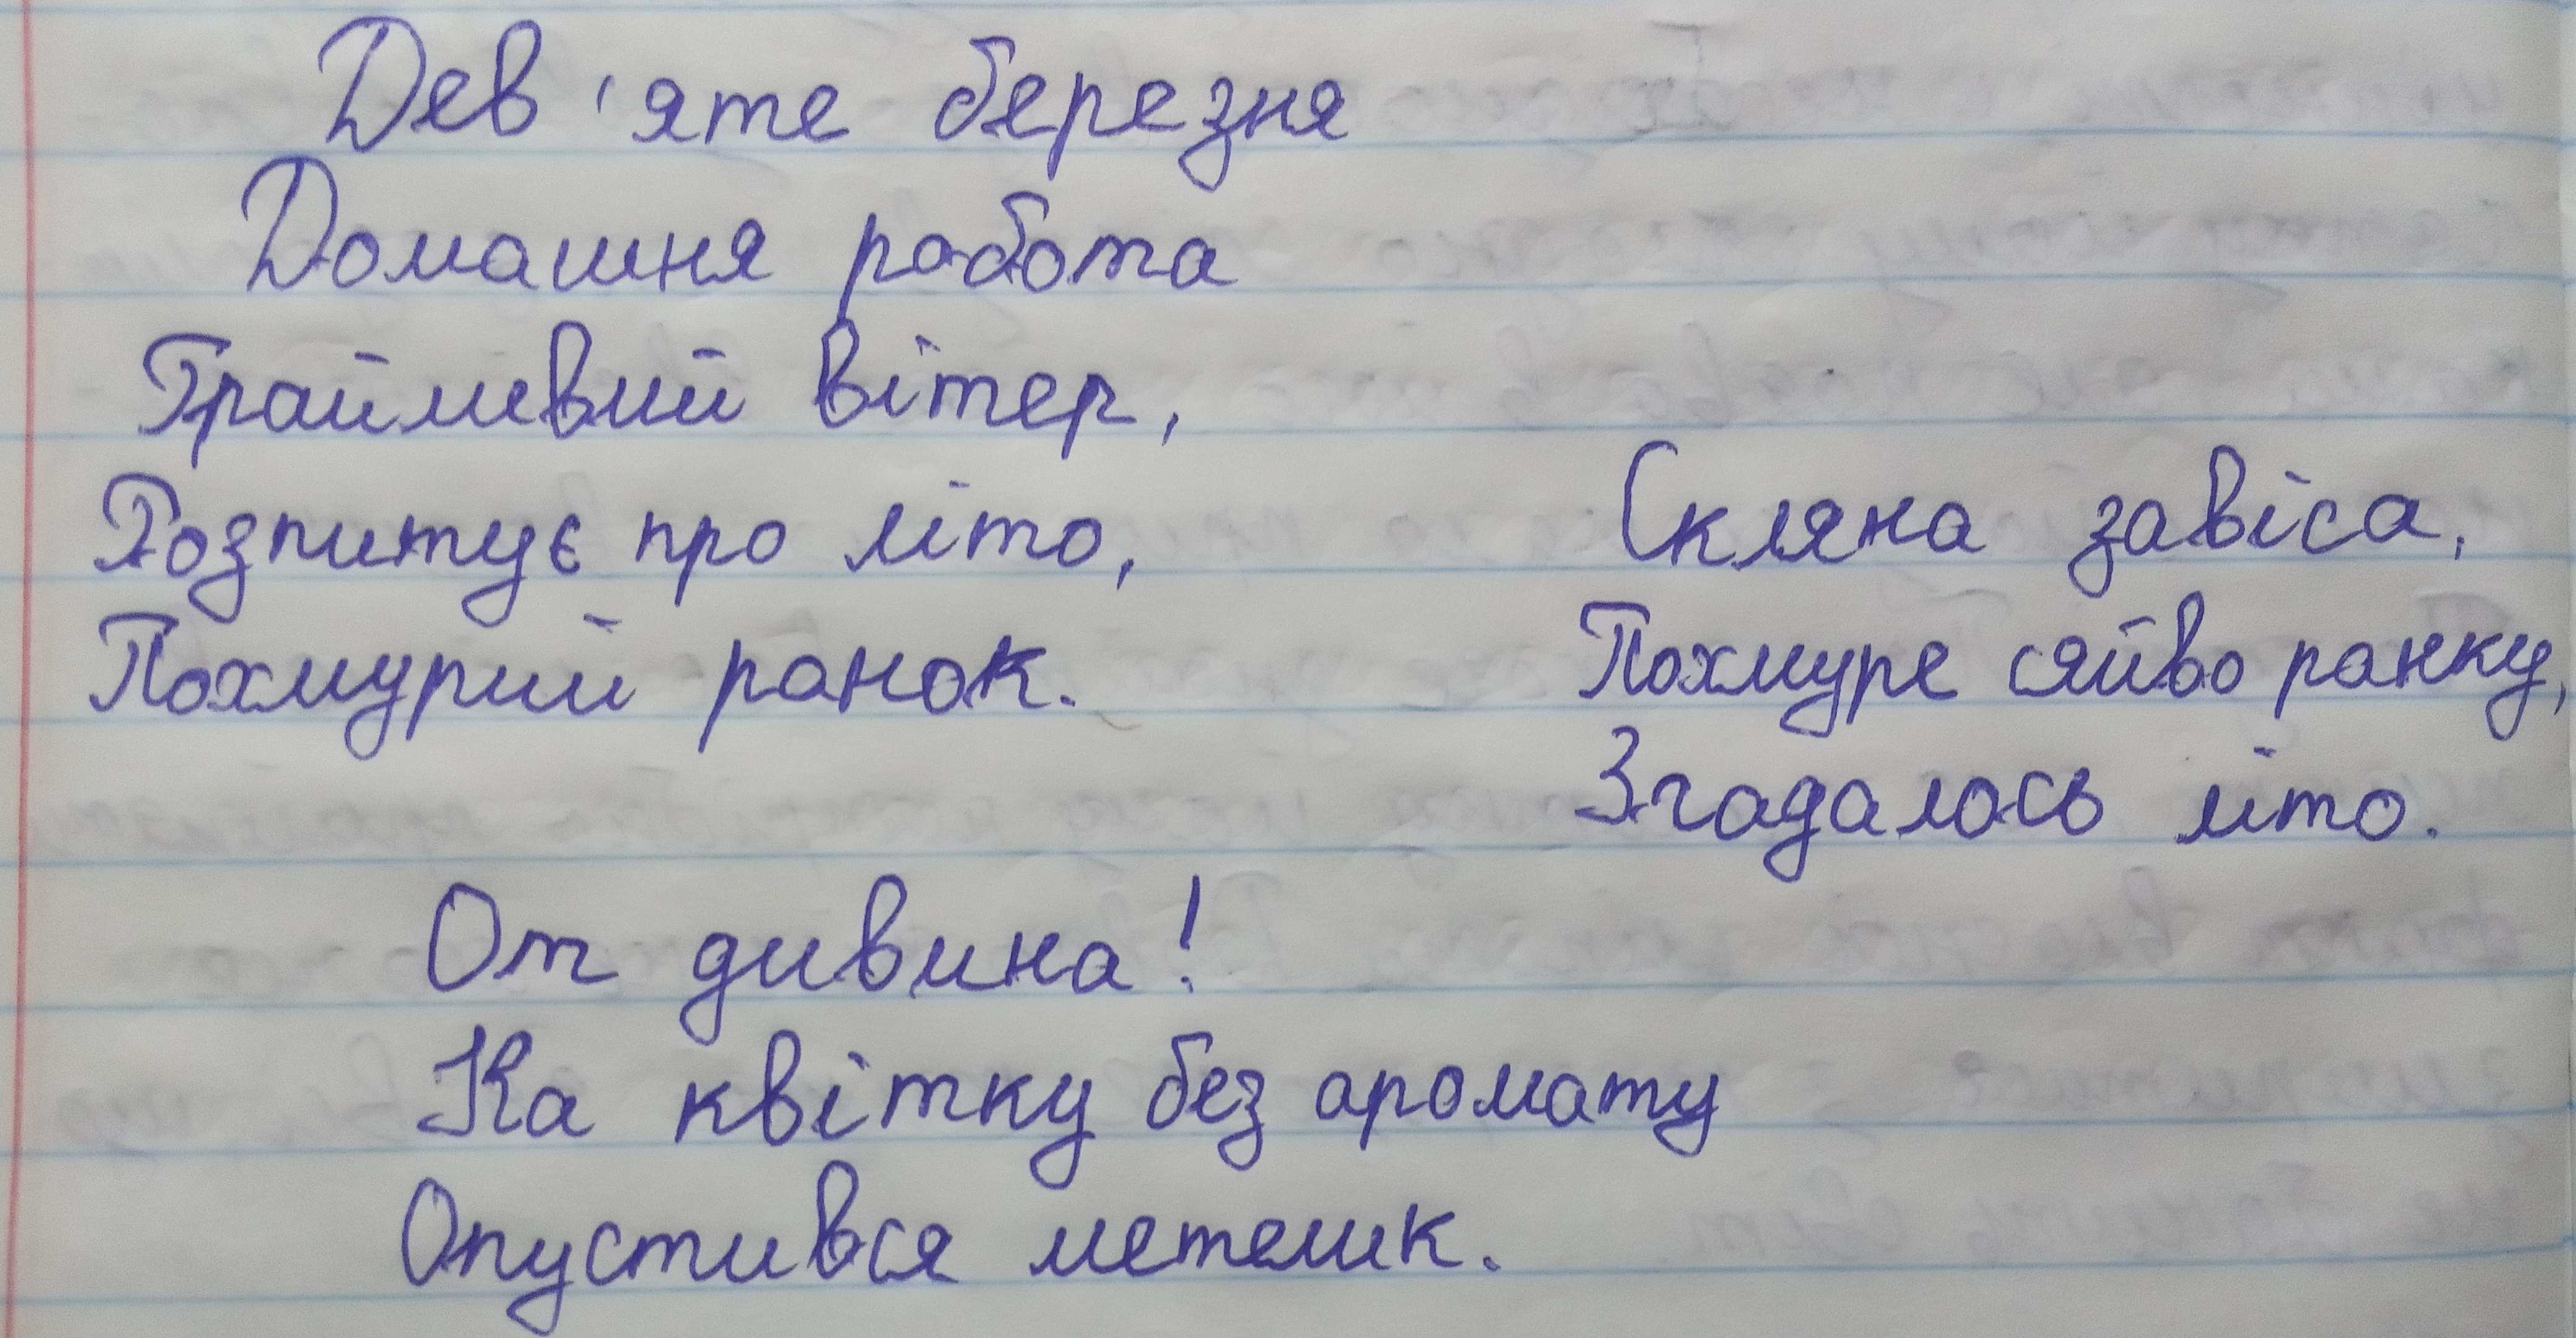 Дев'яте березня
Домашня робота
Грайливий вітер,
Розпитує про літо,
Похмурий ранок.
Скляна завіса,
Похмуре сяйво ранку,
Згадалось літо.
От дивина!
На квітку без аромату
Опустився метелик.